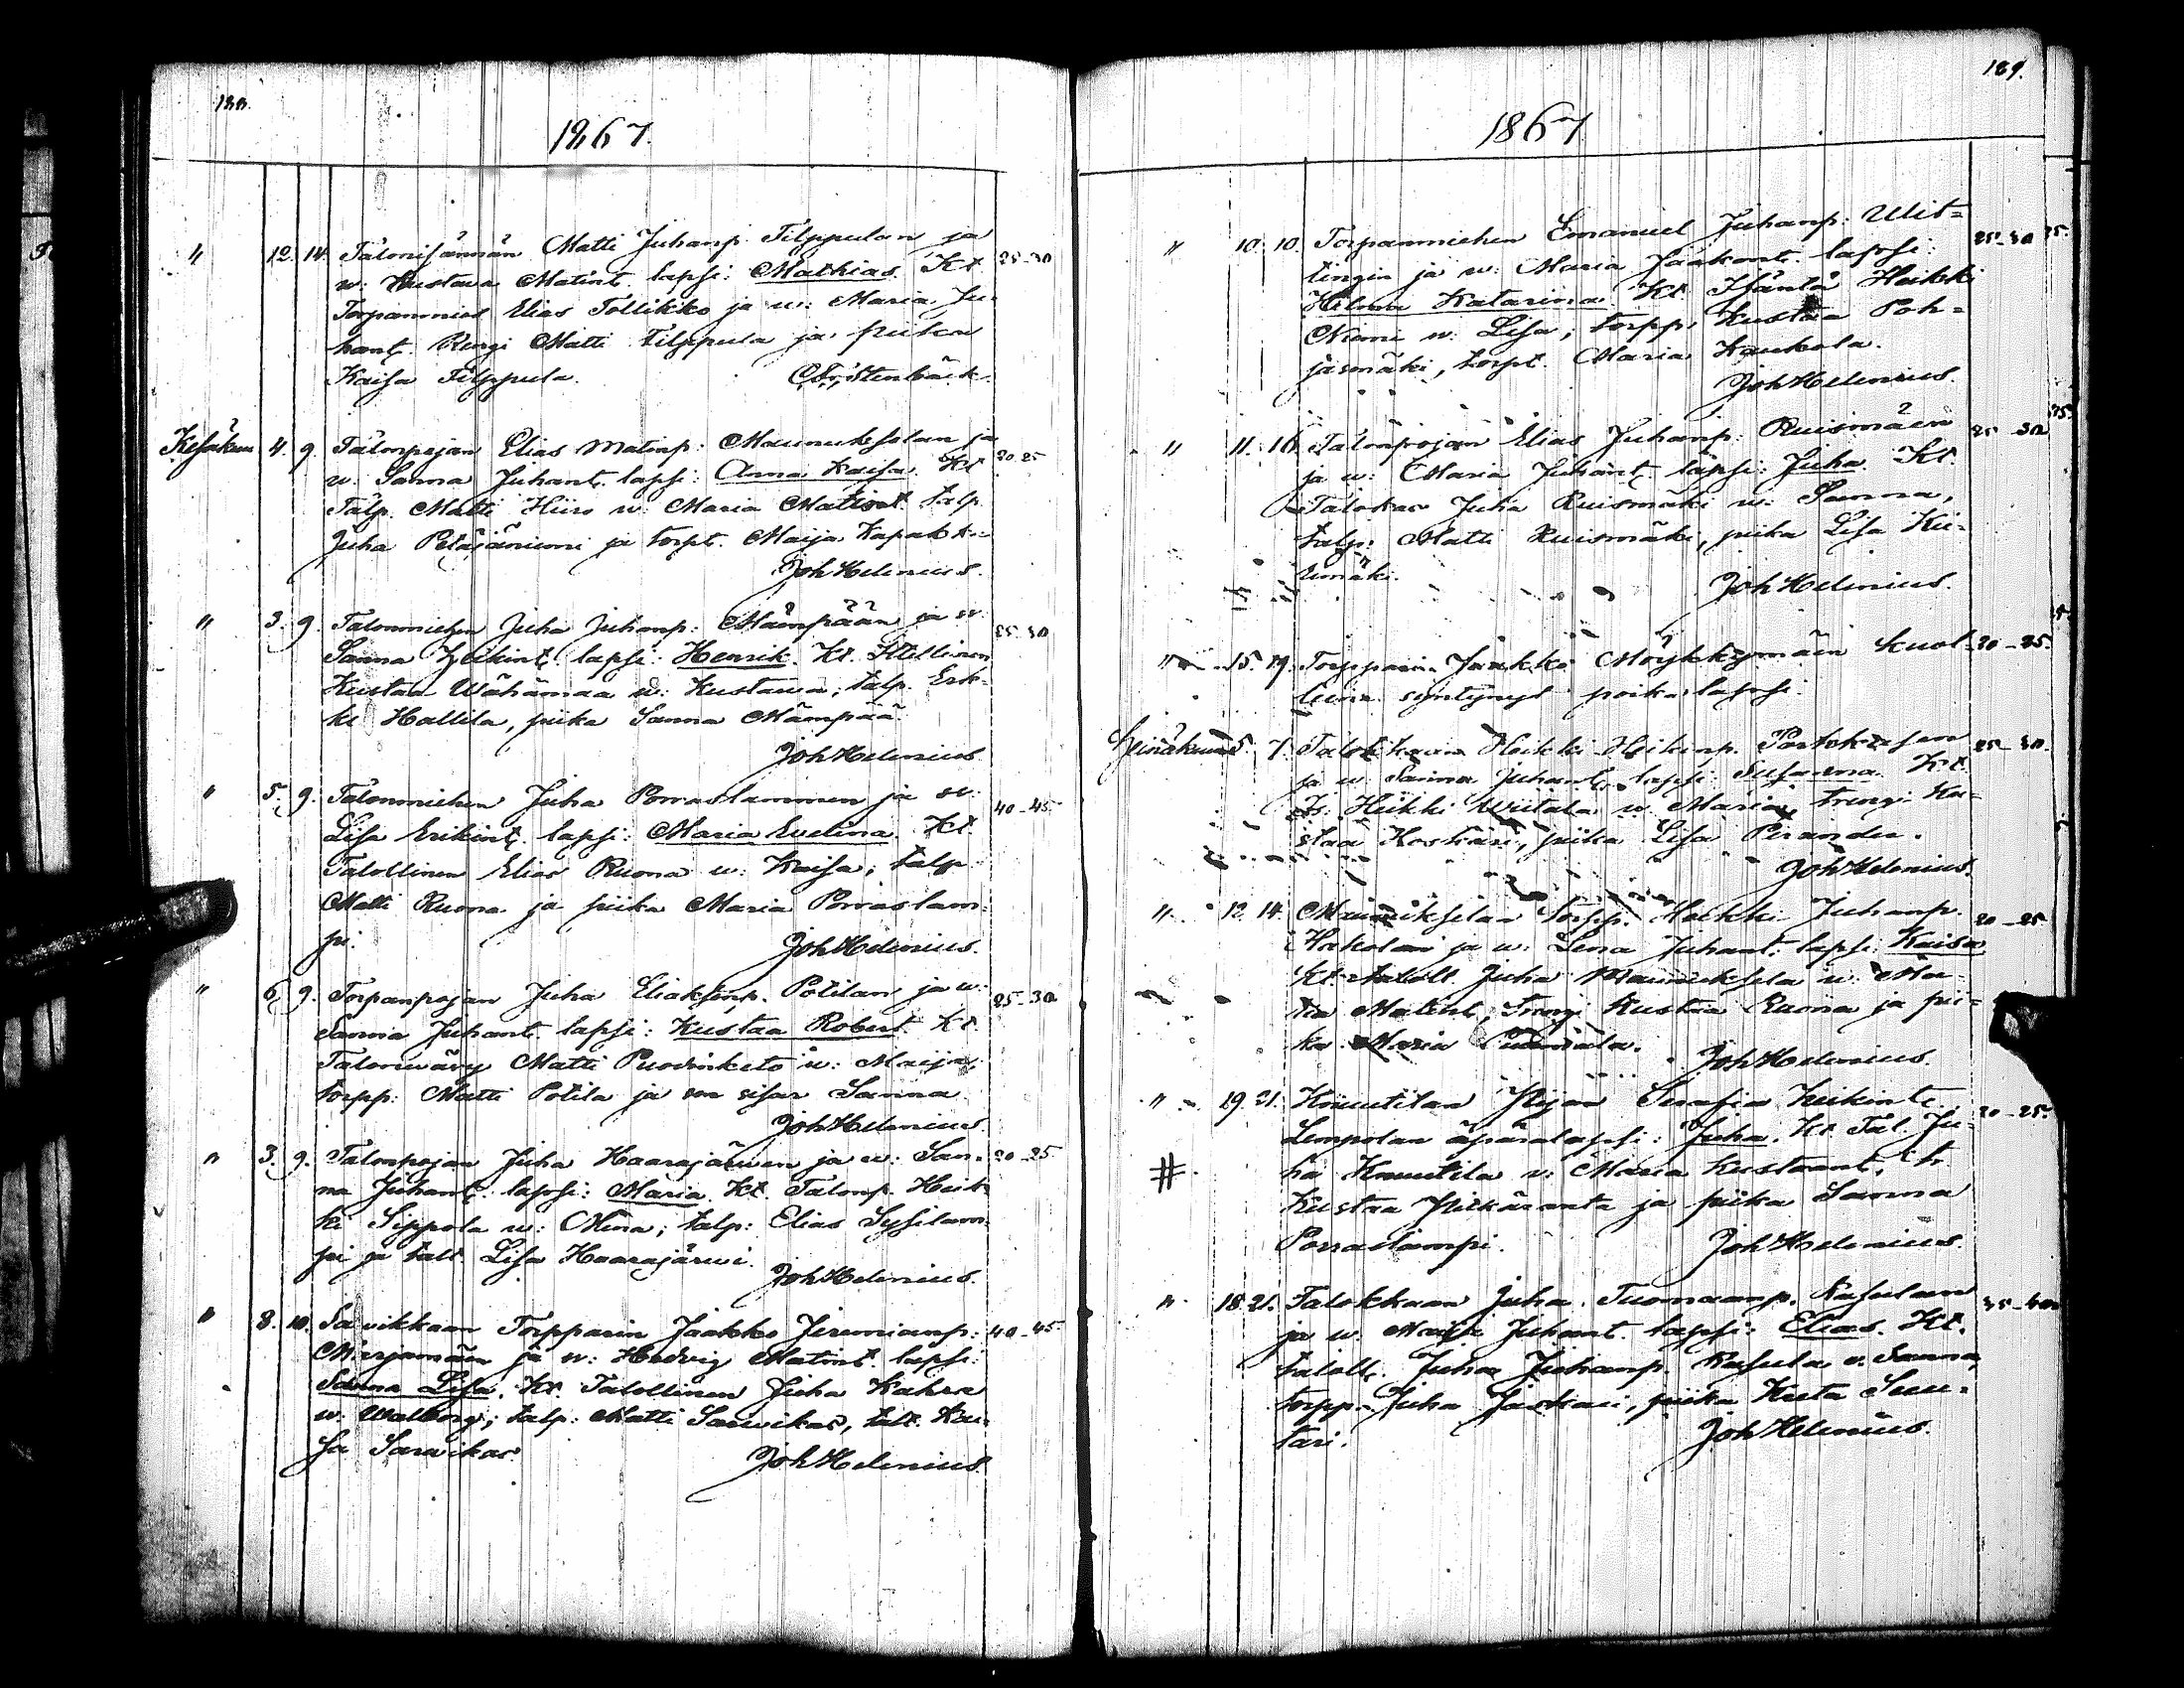 188.
1867.
" 12. 14. Talonisännän Matti Juhanp. Filppulan ja 25-30
w: Kustava Matint. lapsi: Mathias. Kt
Torpanmies Elias Tollikko ja w: Maria Ju-
hant. Rengi Matti Filppula ja piika
Kaisa Filppula.
Kesäkuu 4. 9. Talonpojan Elias Matinp: Maunukselan ja 20-25
w: Sanna Juhant. lapsi: Anna Kaisa. Kt
Talp. Matti Hiiro w: Maria Matint. talp.
Juha Petäjäniemi ja torpt. Maija
Joh Helenius.
" 3. 9. Talonmiehen Juha Juhanp: Mämpään ja w: 25-30
Sanna Heikint. lapsi: Henrik. Kt.
Kustaa Wähämaa w: Kustawa; talp. Erk-
ki Hallila, piika Sanna Mämpää.
Joh Helenius.
" 5. 9. Talonmiehen Juha Porraslammen ja w: 40-45
Lisa Erikint. lapsi: Maria Evelina. Kt.
Talollinen Elias Ruona w: Kaisa; talp.
Matti Ruona ja piika Maria Porraslam-
pi. Joh Helenius.
" 6. 9. Torpanpojan Juha Eliaksenp. Potilan ja w: 25-30
Sanna Juhant. lapsi: Kustaa Robert. Kt
Talonwäry Matti Puosinketo w: Maija,
torpp: Matti Potila ja sen sisar Sanna.
Joh Helenius.
" 3. 9. Talonpojan Juha Haarajärwen ja w: San- 20-25
na Juhant. lapsi: Maria. Kt. Talonp. Heik-
ki Sippola w: Miina; talp: Elias Sysilam-
pi ja talt. Lisa Haarajärwi.
Joh Helenius.
" 8. 10. Sarvikkaan Torpparin Jaakko Jeremianp: 40-45
Marjamäen ja w: Hedvig Matint. lapsi:
Sanna Lisa. Kt. Talollinen Juha Kahra
w: Walborg; talp: Matti Sarvikas, talt. Kai-
sa Sarvikas.
Joh Helenius.
189.
1867
" 10. 10. Torpanmiehen Emanuel Juhanp: Uit- 25-30
tingin ja w: Maria Jaakont. lapsi:
Hilma Katarina. Kt. Isäntä Heikki
Niemi w: Lisa; torpp. Kustaa Poh-
jasmäki, torpt. Maria Kaukola.
Joh Helenius.
" 11. 16. Talonpojan Elias Juhanp: Ruismäen 25-30
ja w: Maria Juhant. lapsi: Juha. Kt.
Talokas Juha Ruismäki w: Sanna,
talp: Matti Ruismäki, piika Lisa
Joh Helenius.
" 15. 19. Torpparin Jaakko Möykkymäen kuol- 20-25.
leena syntynyt poika lapsi.
Heinäkuu 5. 7. Talokkaan Heikki Heikinp. 25-30.
ja w: Sanna Juhant. lapsi: Susanna. Kt.
Is. Heikki Wiitala w: Maria, trengi Ku-
staa Koskari, piika Lisa Perander.
Joh Helenius.
" 12. 14. Maunukselan Torpp: Heikki Juhanp. 20-25
Hakolan ja w: Lena Juhant: lapsi: Kaisa
Kt. taloll. Juha Maunuksela w: Ma-
ria Matint; Trengi Kustaa Ruona ja pii-
ka Maria
Joh Helenius.
" 19. 21. Knuutilan Itsjän Serafia Heikint. 20-25.
Lempolan äpärälapsi: Juha. Kt. Tal. Ju-
# ha Knuutila w: Maria Kustaant; tr.
Kustaa Pitkäranta ja piika Sanna
Porraslampi. Joh Helenius.
" 18. 21. Talokkaan Juha Tuomaanp. Rasulan 35-40
ja w: Maija Juhant. lapsi: Elias. Kt.
taloll. Juha Juhanp. Rasula w: Sanna,
torpp. Juha Jaskari, piika Kreta Suu-
tari.
Joh Helenius.